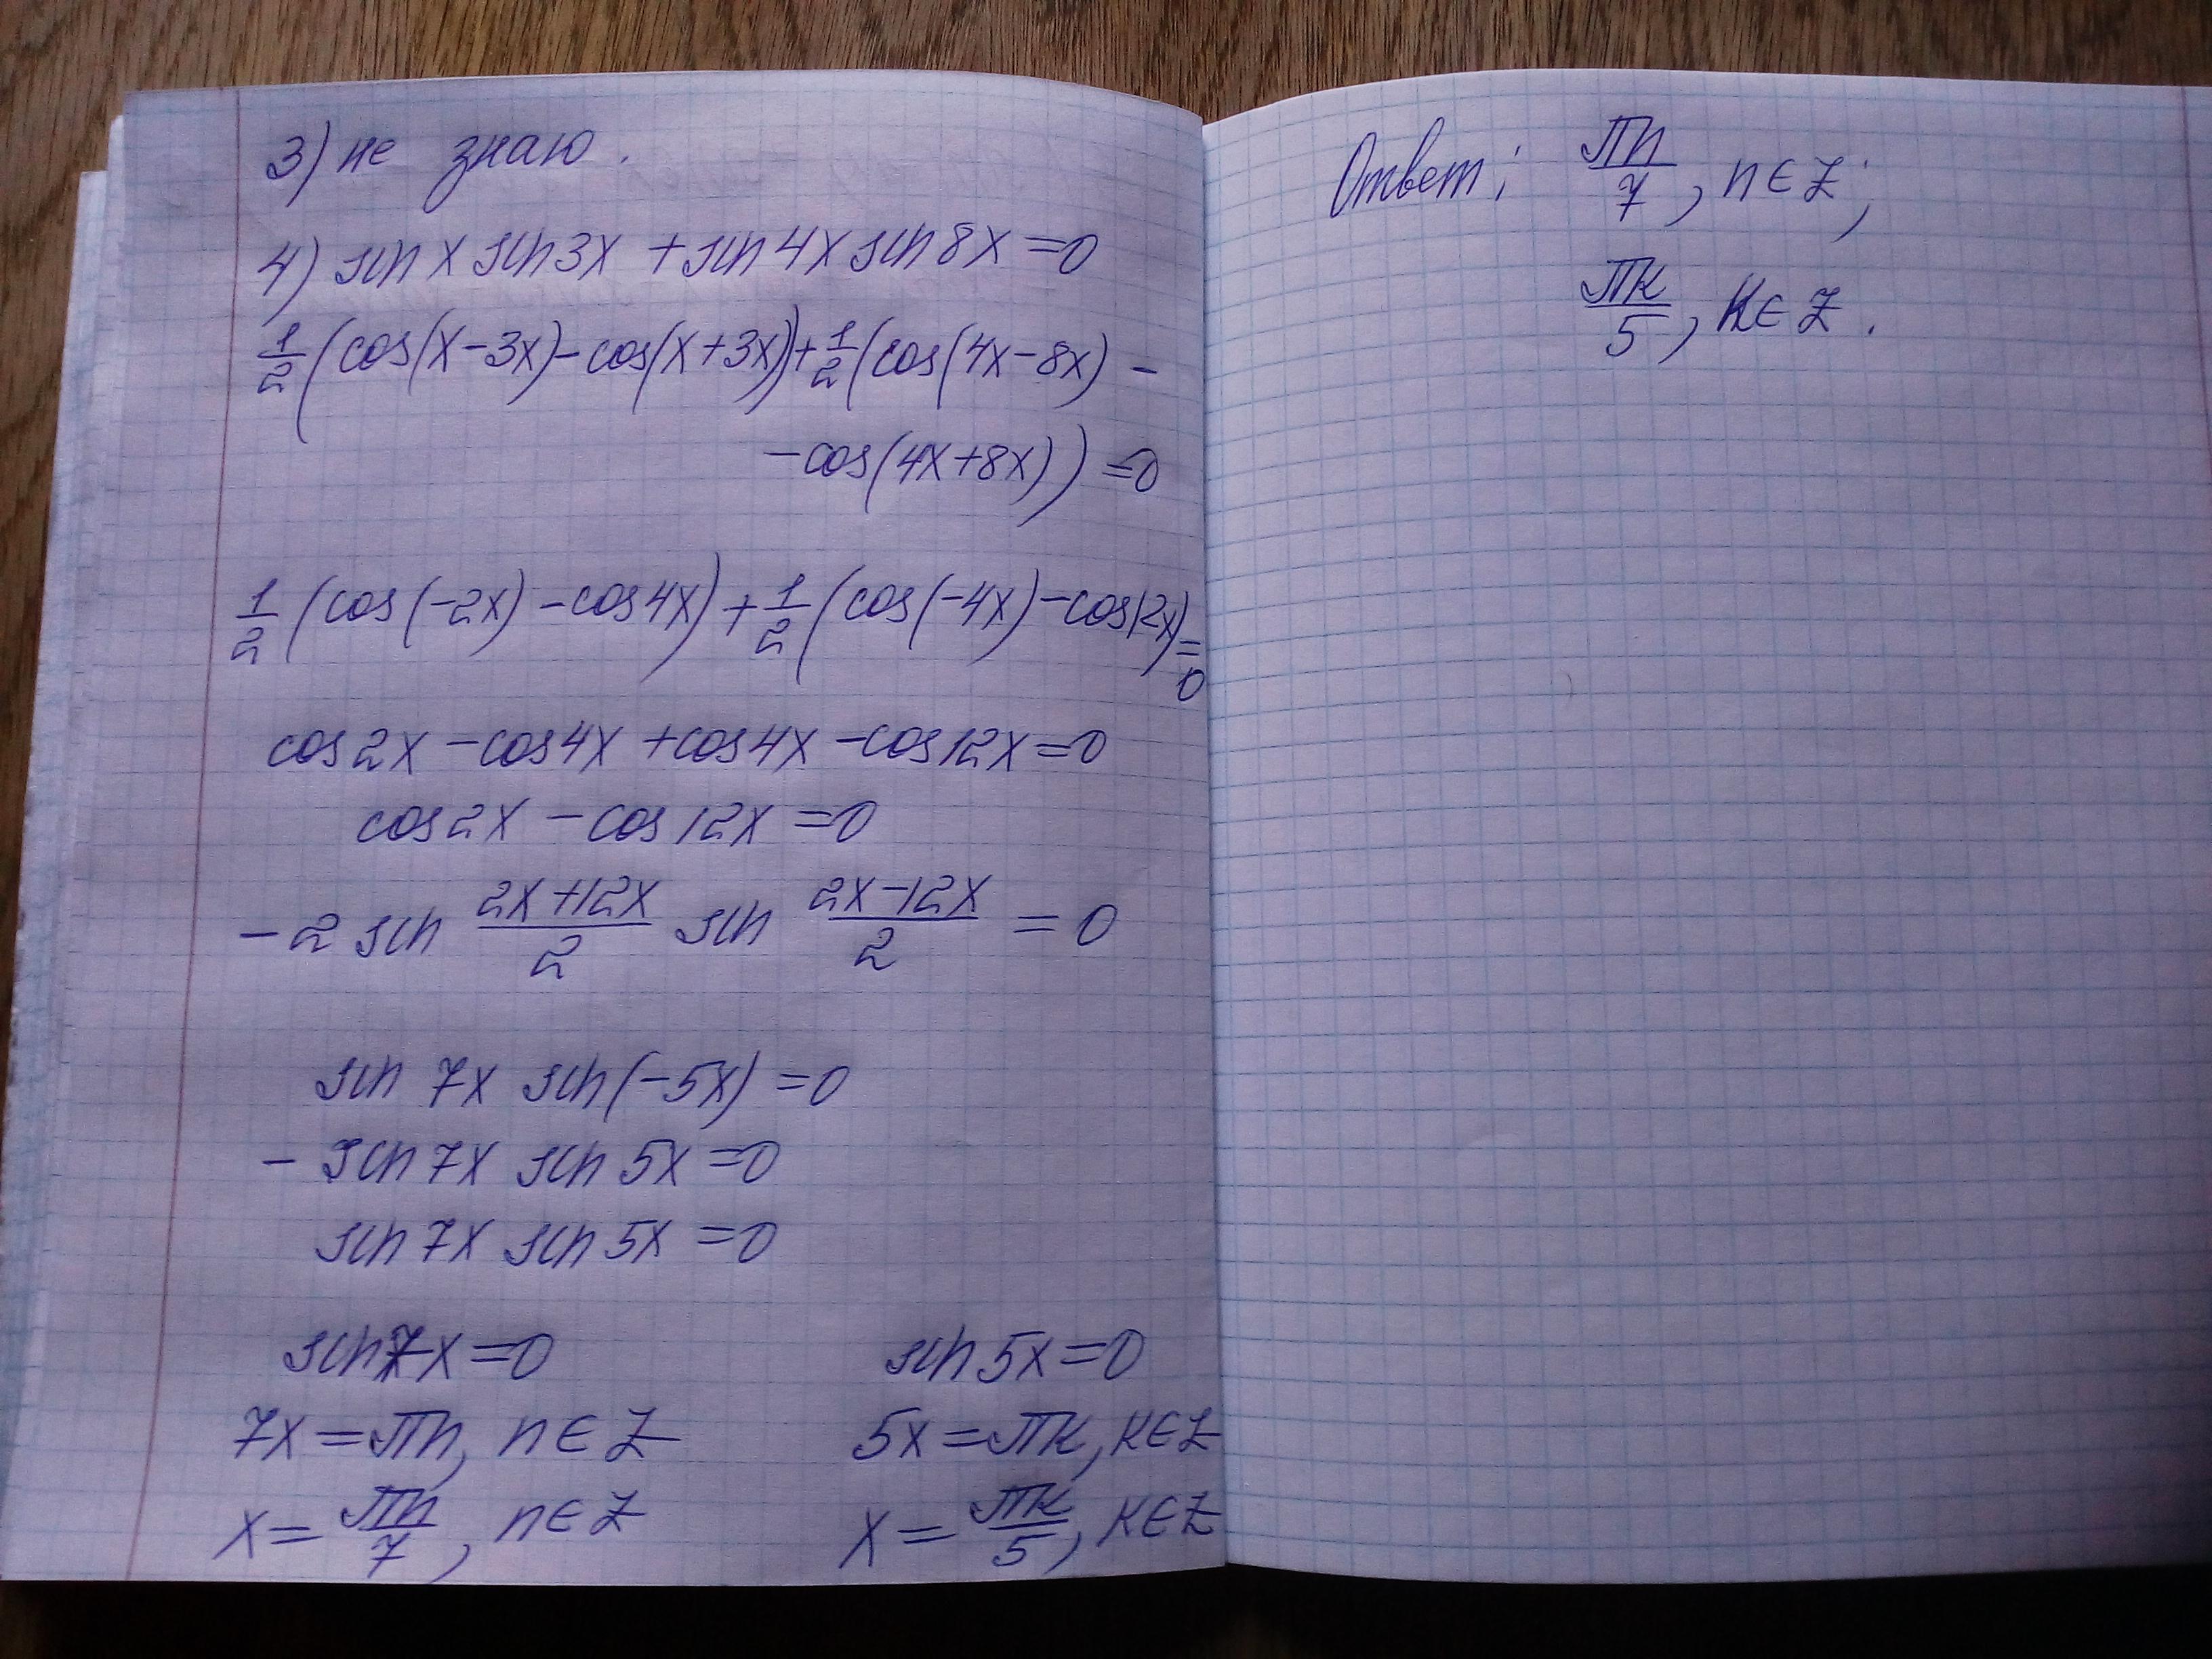 3) не знаю.
4) sin x sin 3x + sin 4x sin 8x = 0
1/2 (cos(x-3x) - cos(x+3x)) + 1/2 (cos(4x-8x) -
- cos(4x+8x)) = 0
1/2 (cos(-2x) - cos 4x) + 1/2 (cos(-4x) - cos 12x) = 0
cos 2x - cos 4x + cos 4x - cos 12x = 0
cos 2x - cos 12x = 0
-2 sin (2x+12x)/2 sin (2x-12x)/2 = 0
sin 7x sin(-5x) = 0
- sin 7x sin 5x = 0
sin 7x sin 5x = 0
sin 7x = 0 sin 5x = 0
7x = πn, n ∈ Z 5x = πк, к ∈ Z
x = πn/7, n ∈ Z x = πк/5, к ∈ Z
Ответ: πn/7, n ∈ Z;
πк/5, к ∈ Z.